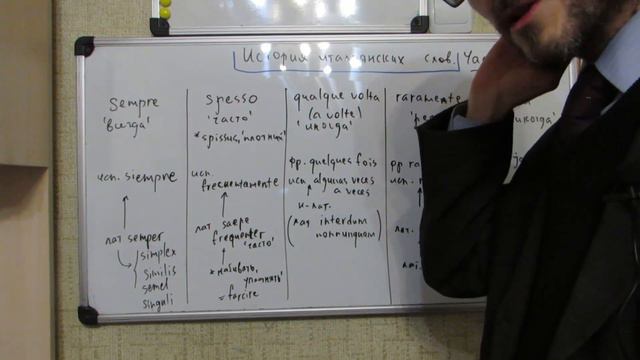 История итальянских слов. Ча
sempre
'всегда'
исп. siempre
лат semper
simplex
similis
semel
singuli
spesso
'часто'
*spissus, 'плотный'
исп.
frecuentemente
лат saepe
frequenter 'часто'
*набивать,
farcire
qualque volta
(a volte)
'иногда'
фр. quelques fois
исп algunas veces
a veces
н-лат.
(лат interdum
nonnunquam)
raramente
'ре
фр ra
исп.
лат.
икогда'